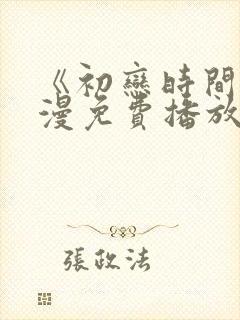 《初戀時間
漫免費播放
張政法